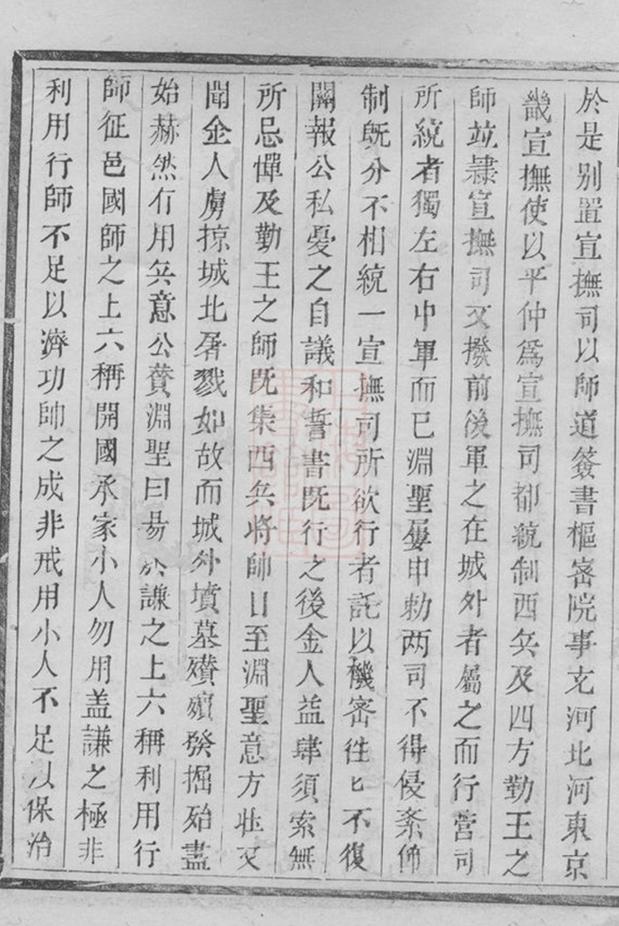 於是别置宣撫司以師道簽書樞密院事充河北河東京
畿宣撫使以平仲為宣撫司都統制西兵及四方勤王之
師竝隷宣撫司又撥前後軍之在城外者屬之而行營司
所統者獨左右中軍而已淵聖屢申勅两司不得侵紊節
制旣分不相統一宣撫司所欲行者託以機密往匕不復
關報公私憂之自議和誓書旣行之後金人益肆須索無
所忌憚及勤王之師既集西兵將帥日至淵聖意方壯又
聞金人虜掠城北屠戮如故而城外墳墓殯發掘殆盡
始赫然有用兵意公贊淵聖曰易於謙之上六稱利用行
師征邑國師之上六稱開國承家小人勿用盖謙之極非
利用行師不足以濟功師之成非戒用小人不足以保治